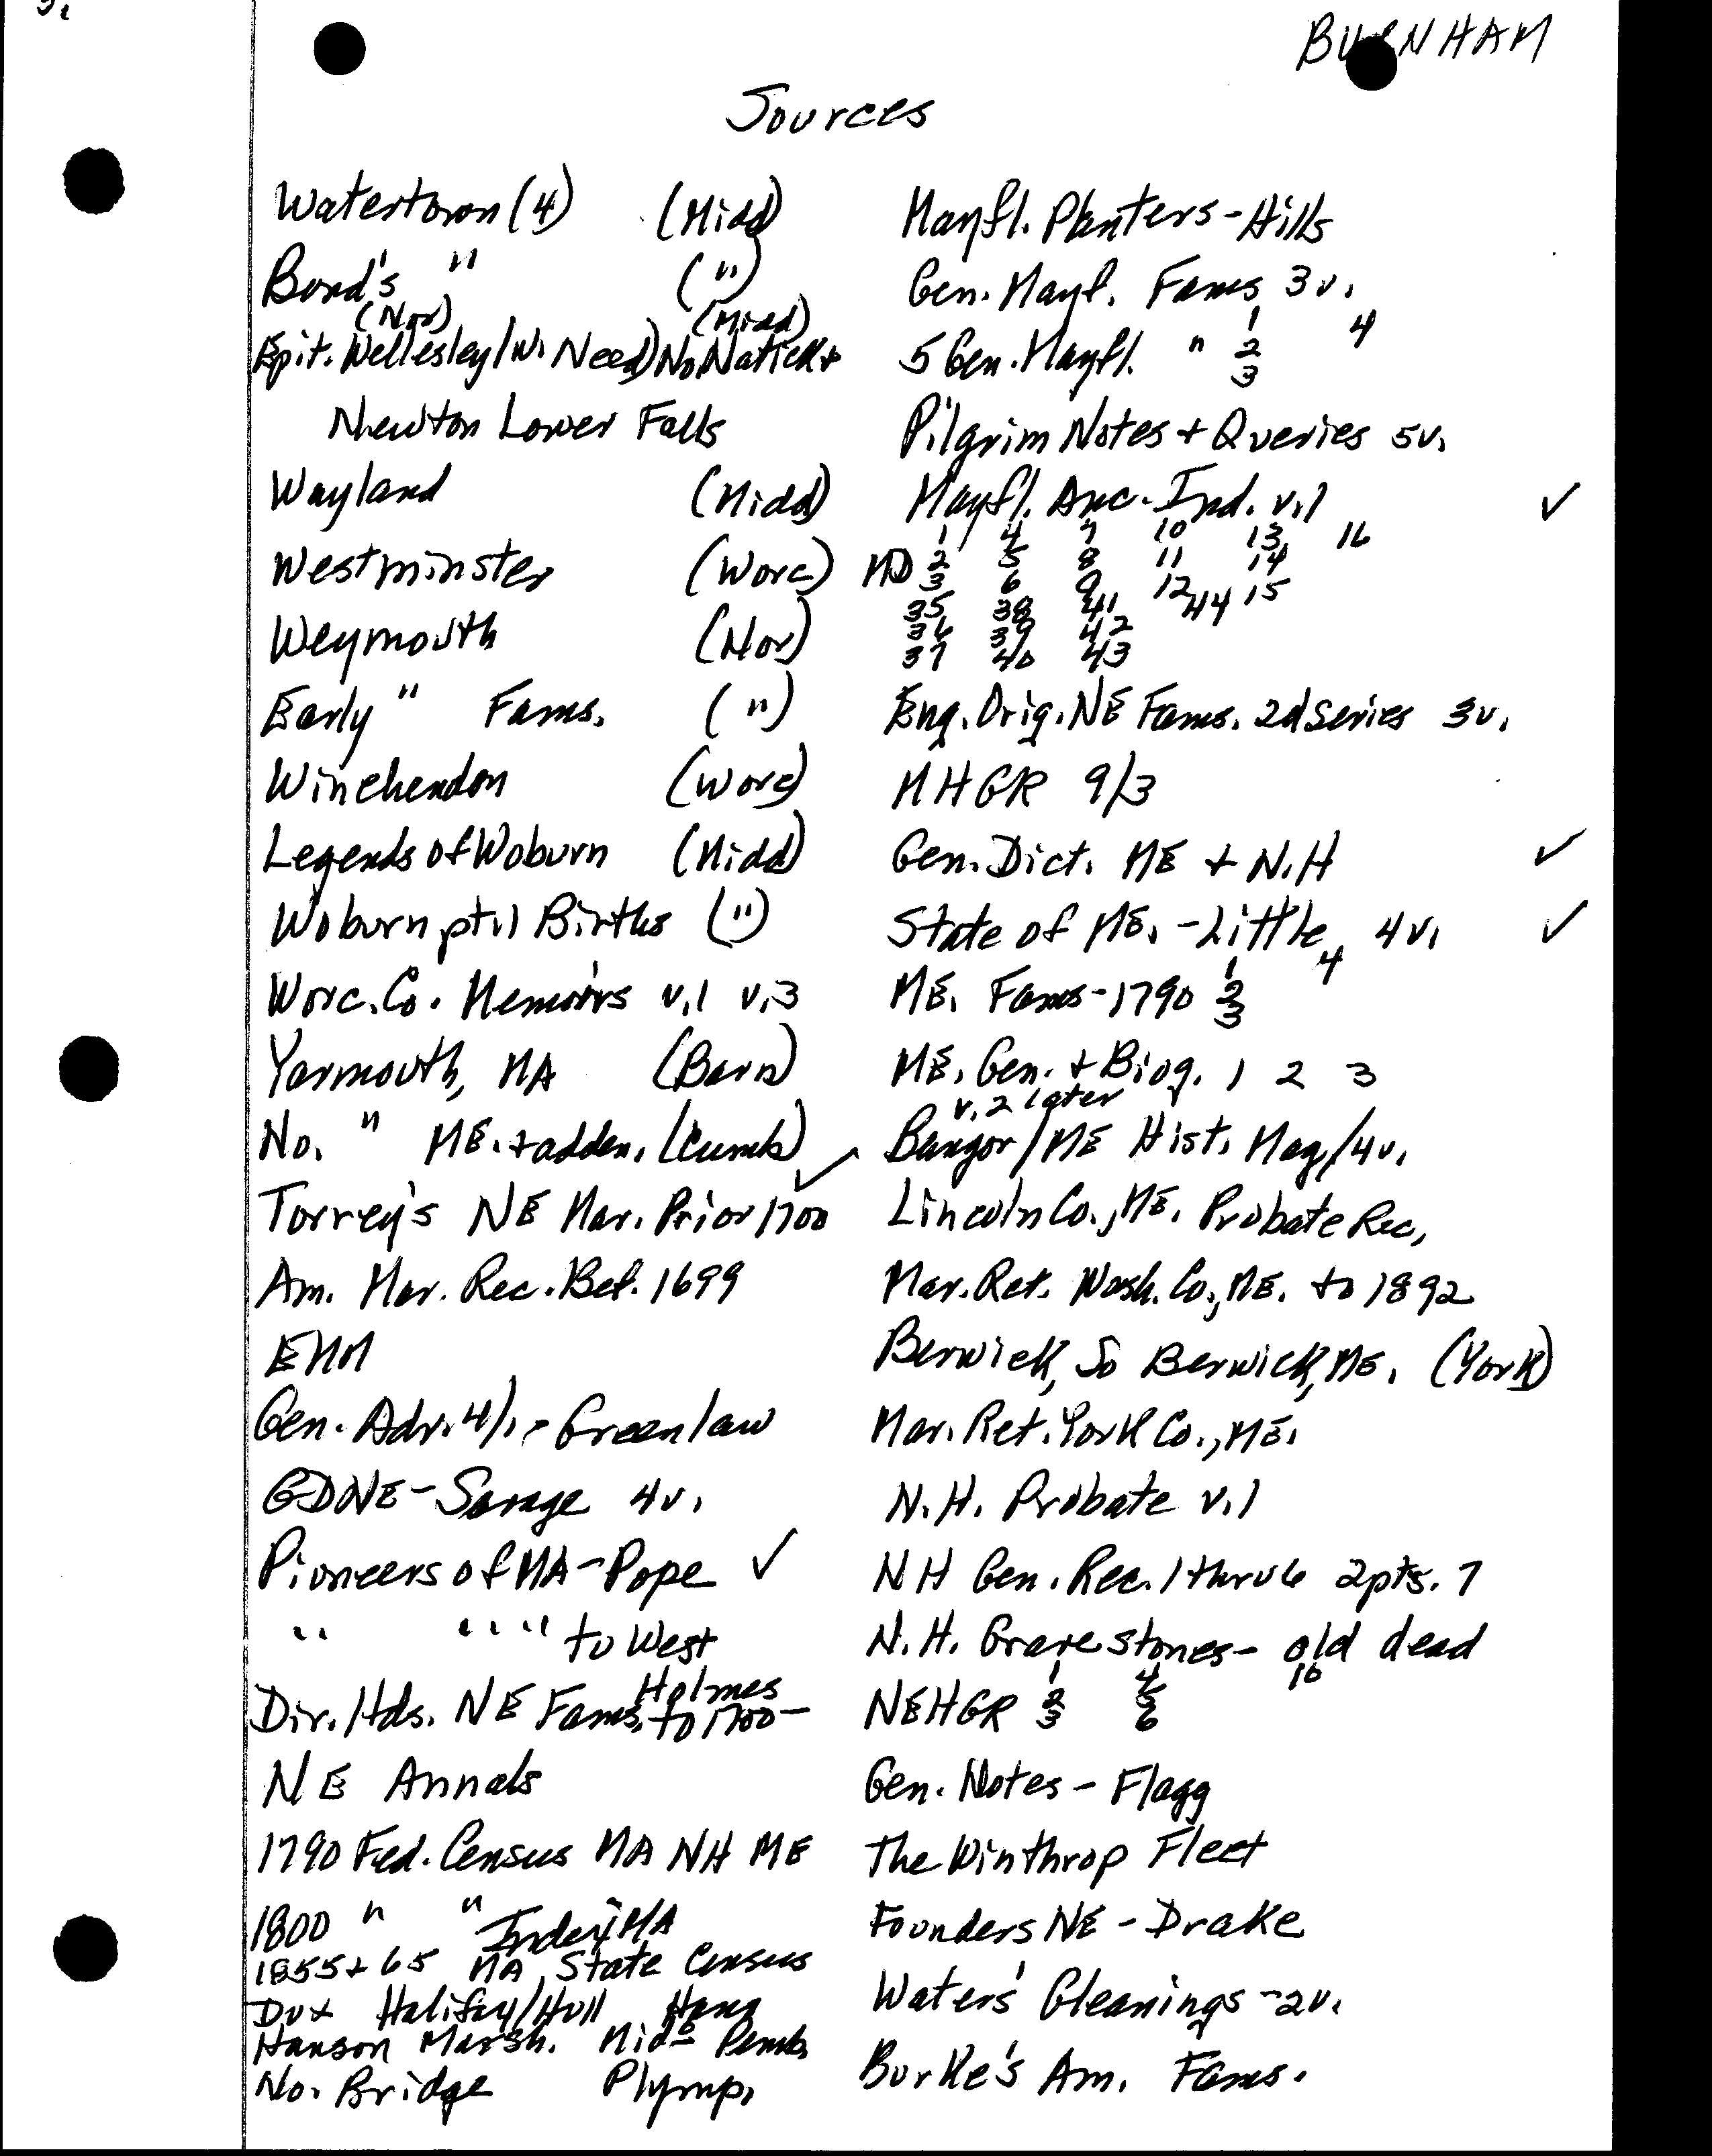 3.
BURNHAM
Sources
Watertown (4) (Midd)
Bond's " (")
(Nor) (Midd)
Epit. Wellesley/W. Need) No. Natick +
Newton Lower Falls
Wayland (Midd)
Westminster (Worc)
Weymouth (Nor)
Early " Fams. (")
Winchendon (Worc)
Legends of Woburn (Midd)
Woburn pt. 1 Births (")
Worc. Co. Memoirs v.1 v.3
Yarmouth, MA (Barn)
No. " ME. + adden. (Cumb) ✓
Torrey's NE Mar. Prior 1700
Am. Mar. Rec. Bef. 1699
EMM
Gen. Adv. 4/1 - Greenlaw
GDNE - Savage 4v.
Pioneers of MA - Pope ✓
" " " to West
Holmes
Dir. Hds. NE Fams. to 1700 -
NE Annals
1790 Fed. Census MA NH ME
1800 " " Index MA
1855 + 65 MA State Census
Dux Halifax/Hull Hano
Hanson Marsh. Mid- Pemb.
No. Bridge Plymp.
Mayfl. Planters - Hills
Gen. Mayfl. Fams 3v.
1 4
5 Gen. Mayfl. " 2
3
Pilgrim Notes + Queries 5v.
Mayfl. Anc. Ind. v.1 ✓
1 4 7 10 13 16
MD 2 5 8 11 14
3 6 9 12 15
35 38 41 44
36 39 42
37 40 43
Eng. Orig. NE Fams. 2d Series 3v.
MHGR 9/3
Gen. Dict. ME + N.H ✓
State of ME. - Little 4v. ✓
1 4
ME. Fams - 1790 2
3
ME. Gen. + Biog. 1 2 3
v. 2 later
Bangor/ME Hist. Mag/4v.
Lincoln Co., ME. Probate Rec.
Mar. Ret. Wash. Co., ME. to 1892
Berwick, So Berwick, ME. (York)
Mar. Ret. York Co., ME.
N.H. Probate v.1
NH Gen. Rec. 1 thru 6 2pts. 7
N.H. Gravestones - old dead
1 4 16
NEHGR 2 5
3 6
Gen. Notes - Flagg
The Winthrop Fleet
Founders NE - Drake
Waters' Gleanings - 2v.
Burke's Am. Fams.